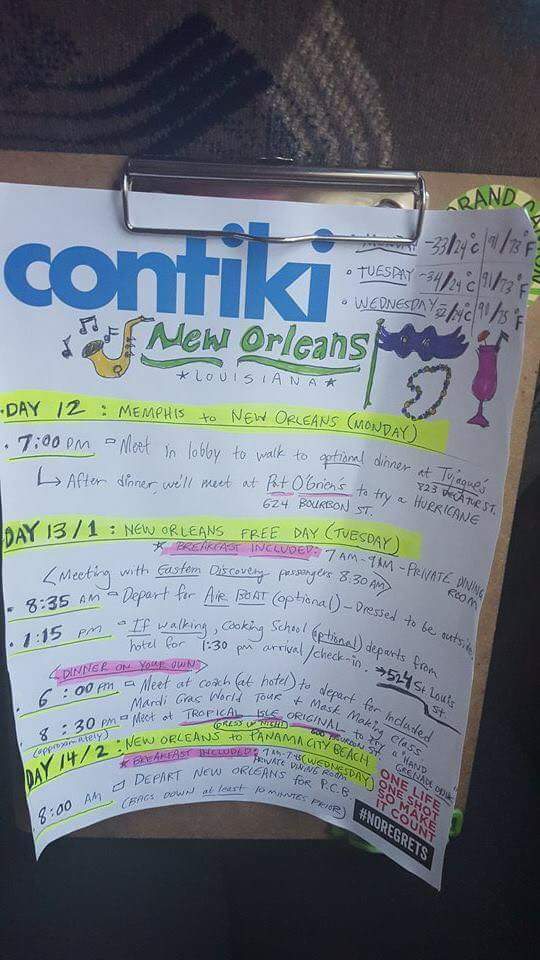 GRAND CANYON
contiki
• MONDAY -33/24°C | 91/73°F
• TUESDAY -34/24°C | 91/73°F
• WEDNESDAY -32/24°C | 90/75°F
New Orleans
*LOUISIANA*
• DAY 12 : MEMPHIS to NEW ORLEANS (MONDAY)
• 7:00 PM Meet in lobby to walk to optional dinner at Tujague's
823 DECATUR ST.
↳ After dinner, we'll meet at Pat O'Brien's to try a HURRICANE
624 BOURBON ST.
DAY 13/1 : NEW ORLEANS FREE DAY (TUESDAY)
* BREAKFAST INCLUDED: 7 AM - 9 AM - PRIVATE DINING ROOM
(Meeting with Eastern Discovery passengers 8:30 AM)
• 8:35 AM Depart for AIR BOAT (optional) - Dressed to be outside
• 1:15 pm If walking, Cooking School (optional) departs from
hotel for 1:30 pm arrival/check-in. → 524 St Louis St
DINNER ON YOUR OWN
6:00pm Meet at coach (at hotel) to depart for included
Mardi Gras World Tour & Mask Making class
8:30 pm Meet at TROPICAL ISLE ORIGINAL to try a "HAND
(approximately) (DRESS UP NIGHT) 600 BOURBON ST. GRENADE" DRINK
DAY 14/2 : NEW ORLEANS to PANAMA CITY BEACH
(WEDNESDAY)
* BREAKFAST INCLUDED: 7 AM -
PRIVATE DINING ROOM
8:00 AM DEPART NEW ORLEANS for P.C.B
(BAGS DOWN at least 10 MINUTES PRIOR)
ONE LIFE
ONE SHOT
MAKE
IT COUNT
#NOREGRETS